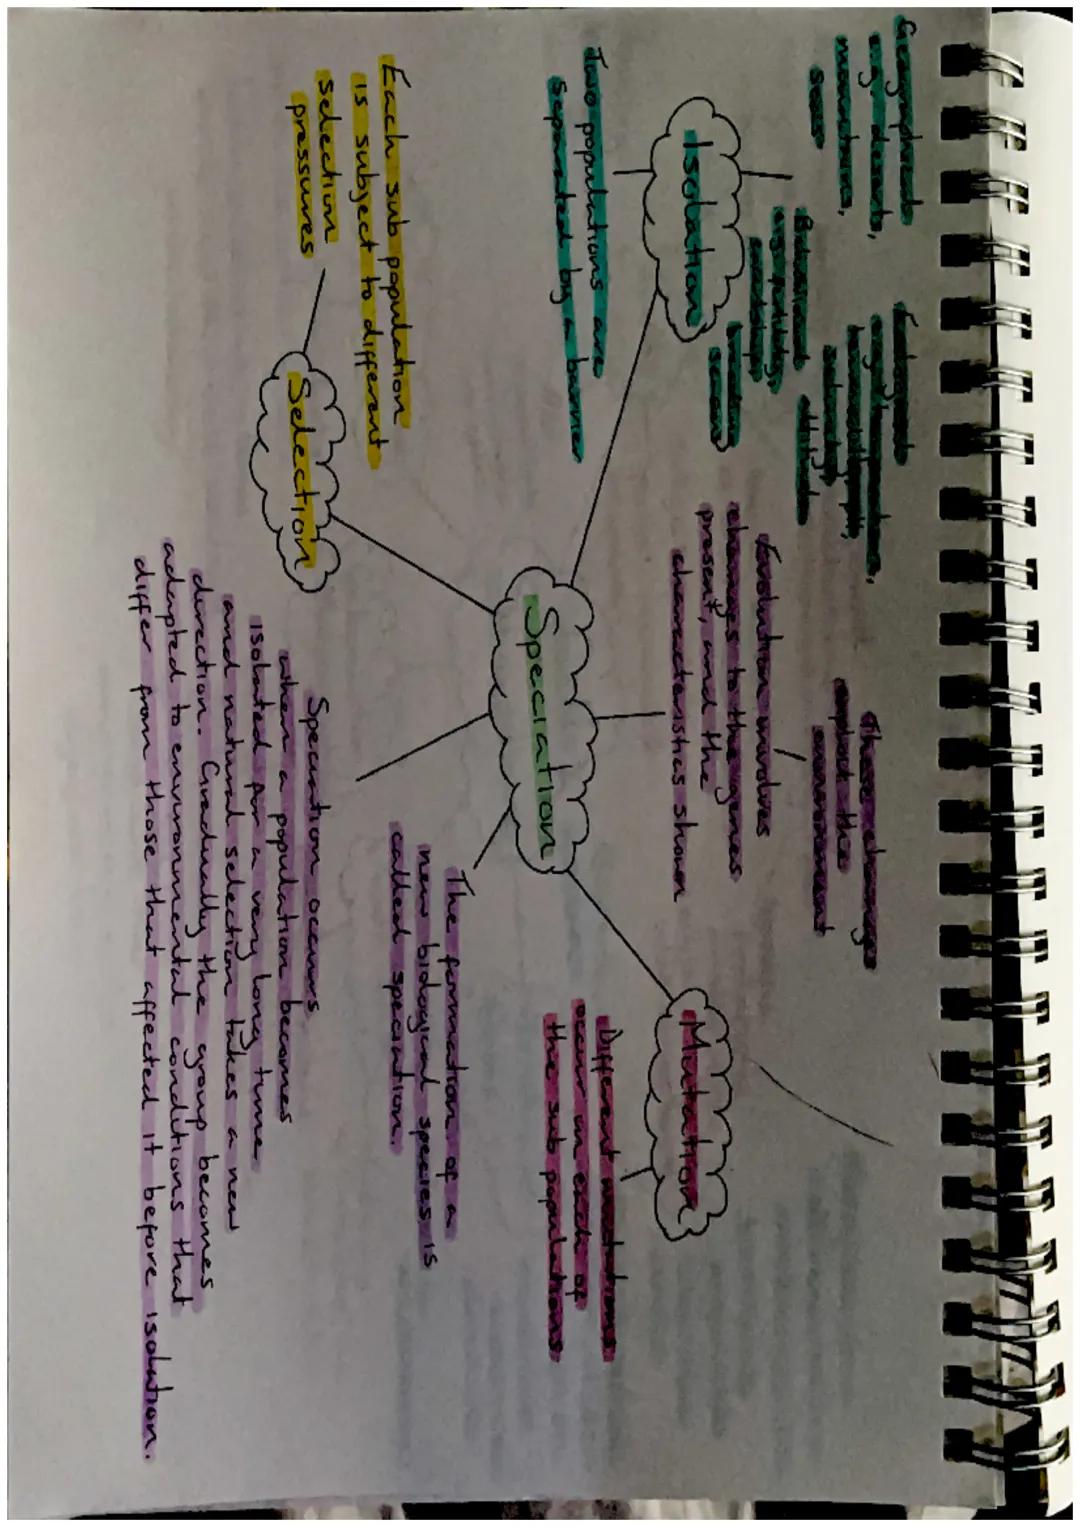 Geographical
e.g. deserts,
mountains,
seas
Ecological
e.g. temperature,
humidity, pH,
salinity, altitude
Behavioural
e.g.
courtship,
breeding
season
Isolation
Two populations are
separated by a barrier
These changes
the
environment
Evolution involves
changes to the genes
present, and the
characteristics shown
Mutation
Different mutations
occur in each of
the sub populations
Speciation
Each sub population
is subject to different
selection
pressures
Selection
The formation of a
new biological species is
called speciation.
Speciation occurs
when a population becomes
isolated for a very long time
and natural selection takes a new
direction. Gradually the group becomes
adapted to environmental conditions that
differ from those that affected it before isolation.